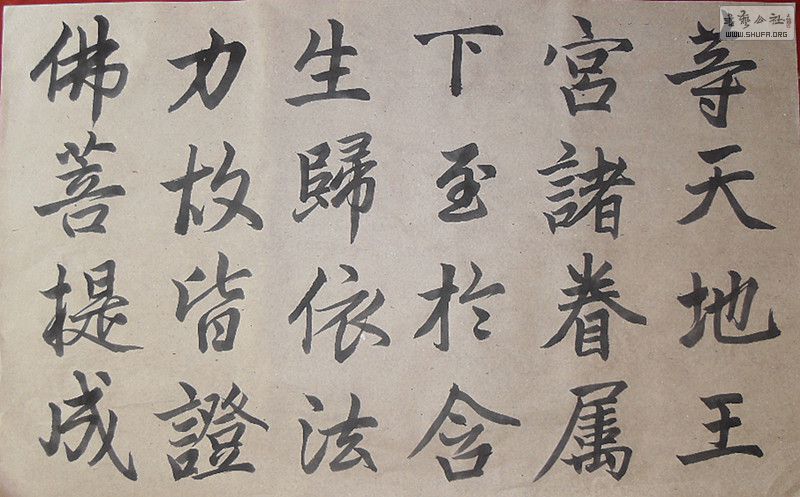 等天地王
宮諸眷属
下至於含
生歸依法
力故皆證
佛菩提成
WWW.SHUFA.ORG